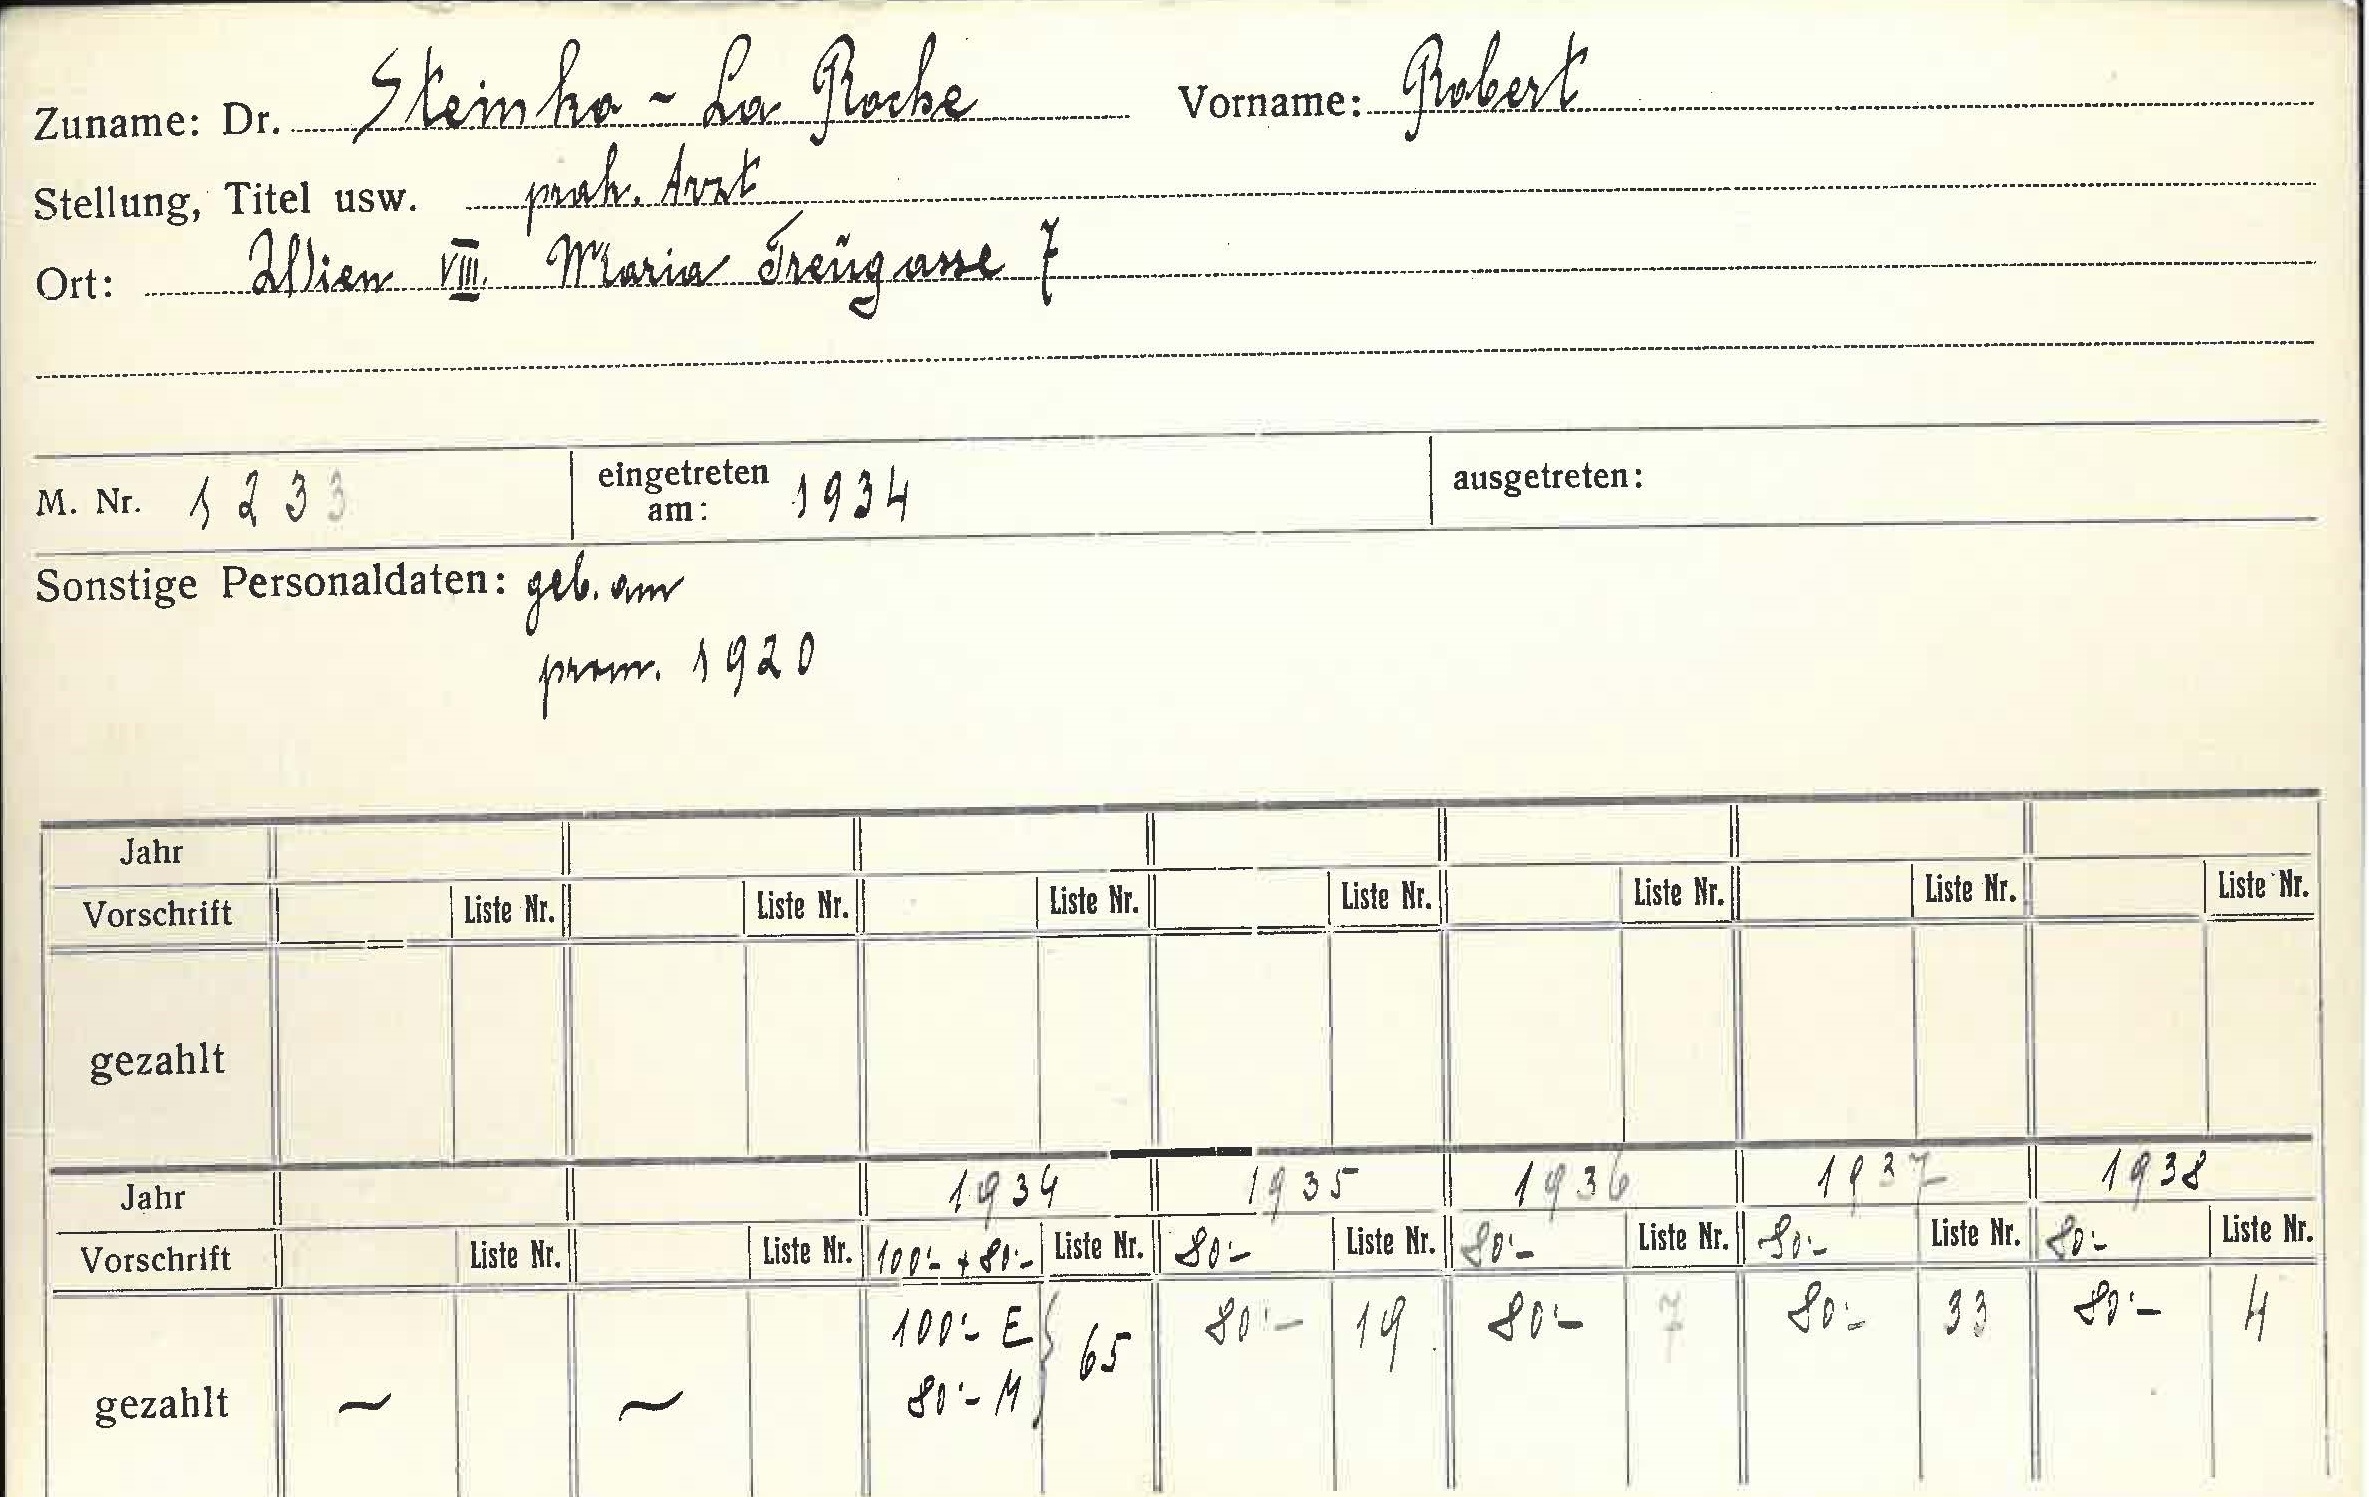 Zuname: Dr. Steinko - La Roche Vorname: Robert
Stellung, Titel usw. prak. Arzt
Ort: Wien VIII. Maria Treugasse 7
M. Nr. 1233 eingetreten am: 1934 ausgetreten:
Sonstige Personaldaten: geb. am
prom. 1920
Jahr
Vorschrift Liste Nr. Liste Nr. Liste Nr. Liste Nr. Liste Nr. Liste Nr. Liste Nr.
gezahlt
Jahr 1934 1935 1936 1937 1938
Vorschrift Liste Nr. Liste Nr. 100·- + 80·- Liste Nr. 80·- Liste Nr. 80·- Liste Nr. 80·- Liste Nr. 80·- Liste Nr.
gezahlt ~ ~ 100·- E 80·- M } 65 80·- 19 80·- 7 80·- 33 80·- 4